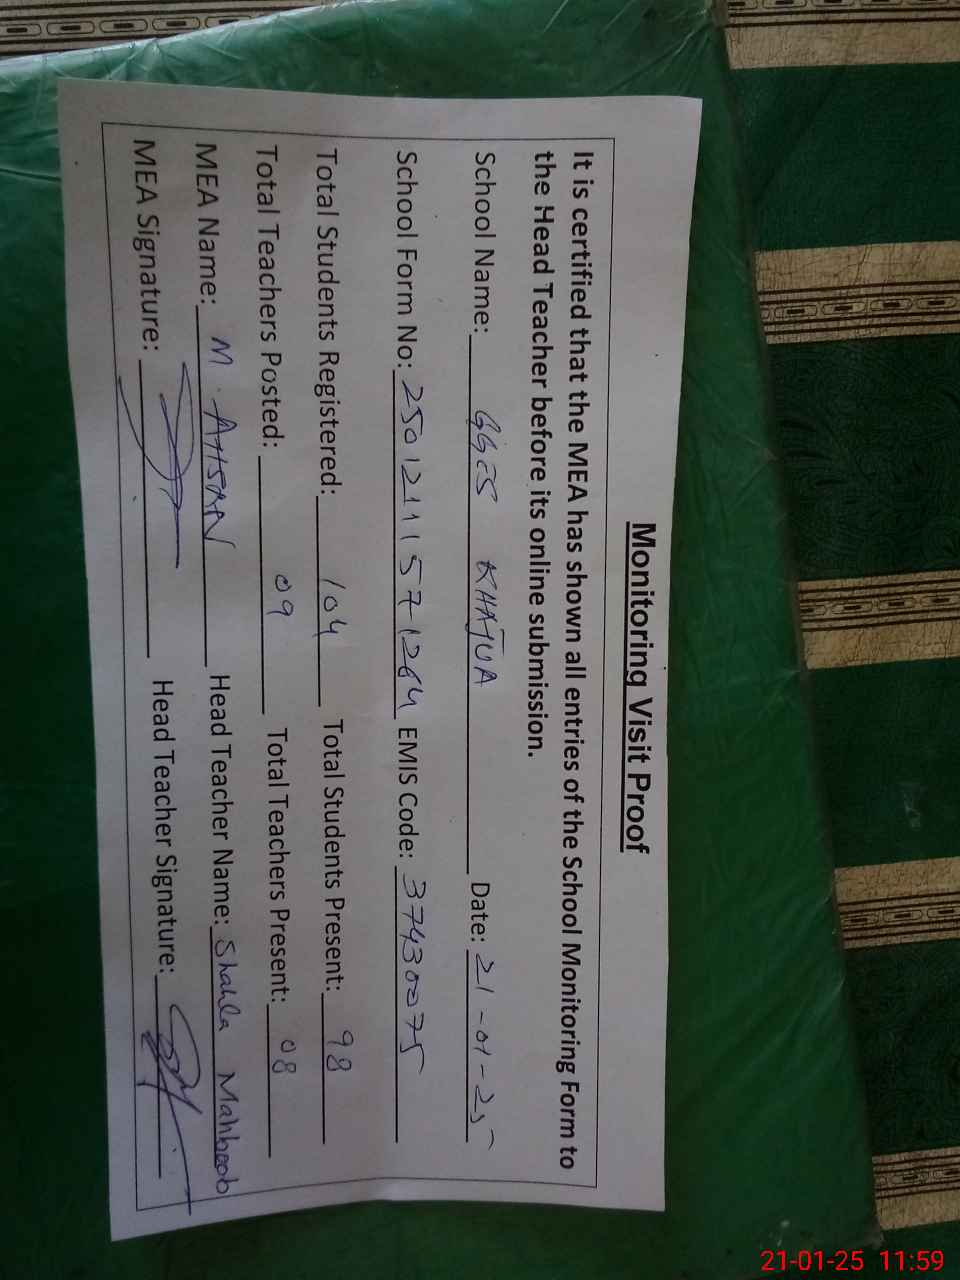 Monitoring Visit Proof
It is certified that the MEA has shown all entries of the School Monitoring Form to
the Head Teacher before its online submission.
School Name: GGES KHAJUA Date: 21-01-25
School Form No: 2501211571264 EMIS Code: 37430075
Total Students Registered: 104 Total Students Present: 98
Total Teachers Posted: 09 Total Teachers Present: 08
MEA Name: M. AHSAN Head Teacher Name: Shahla Mahboob
MEA Signature: Head Teacher Signature:
21-01-25 11:59